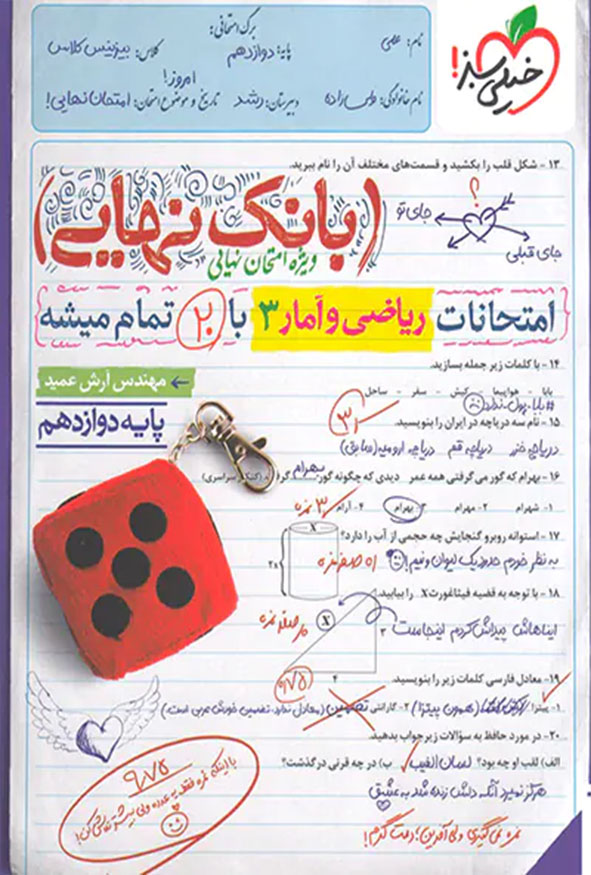 خیلی سبز!
برگ امتحانی:
نام: علمی
پایه: دوازدهم
کلاس: بیزینس کلاس
امروز!
دبیرستان: رشد
تاریخ و موضوع امتحان: امتحان نهایی!
۱۳- شکل قلب را بکشید و قسمت‌های مختلف آن را نام ببرید.
؟
جای تو
جای قبلی
(بانک نهایی)
ویژه امتحان نهایی
{امتحانات ریاضی و آمار ۳ با ۲۰ تمام میشه}
۱۴- با کلمات زیر جمله بسازید.
بابا - هواپیما - کیش - سفر - ساحل
#بابا_پول_نداره
← مهندس آرش عمید
پایه دوازدهم
۱۵- نام سه دریاچه در ایران را بنویسید.
دریاچه خزر دریاچه قم دریاچه ارومیه (سابق)
۱۶- بهرام که گور می گرفتی همه عمر دیدی که چگونه گور بهرام گرفت (کنکور سراسری)
۱- شهرام ۲- مهرام ۳- بهرام ۴- آرام
۳ نمره
۱۷- استوانه روبرو گنجایش چه حجمی از آب را دارد؟
X
۲x
به نظر خودم حدود یک لیوان و نیم!
۱۸- با توجه به قضیه فیثاغورث X را بیابید.
X
۳
۴
ایناهاش پیداش کردم اینجاست
۹/۷۵
۱۹- معادل فارسی کلمات زیر را بنویسید.
۱- پیتزا (همون پیتزا) ۲- گارانتی تضمین (معادل ندارد. تضمین خودش عربی است.)
۲۰- در مورد حافظ به سؤالات زیر جواب بدهید.
الف) لقب او چه بود؟ لسان الغیب ب) در چه قرنی در گذشت؟
هرگز نمیرد آنکه دلش زنده شد به عشق
۹/۷۵
با اینکه نمره فقط یه عدده ولی بیشتر تلاش کن!
نمره نمی‌گیری ولی آفرین! دمت گرم!